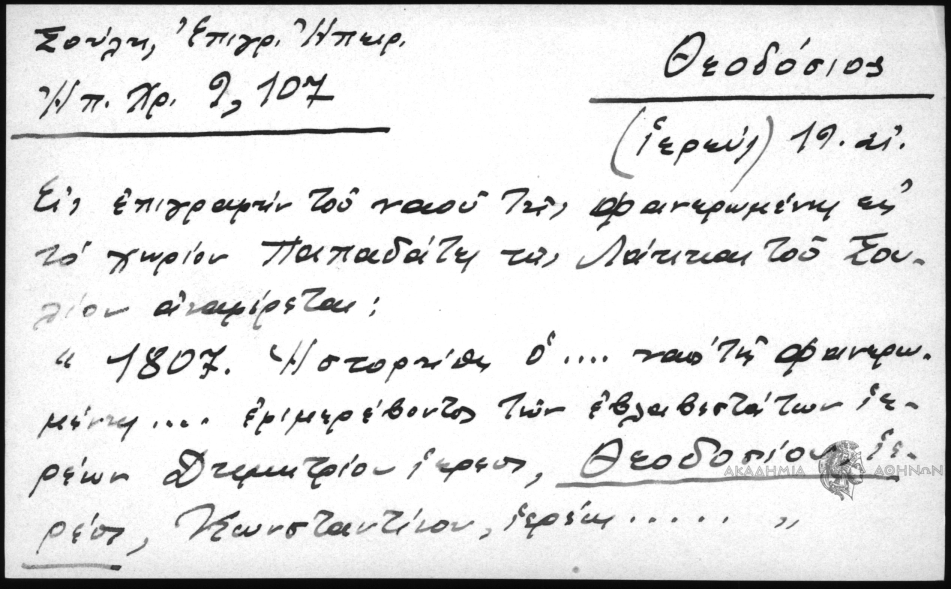 Σούλη, Ἐπιγρ. Ἠπειρ.
Ἠπ. Χρ. 9, 107
Θεοδόσιος
(ἱερεύς) 19. αἰ.
Εἰς ἐπιγραφὴν τοῦ ναοῦ τῆς Φανερωμένης εἰς
τὸ χωρίον Παπαδάτες τῆς Λάκκας τοῦ Σου-
λίου ἀναφέρεται:
" 1807. Ἡστορήθη ὁ .... ναὸς τῆς Φανερω-
μένης .... ἐφιμερέβοντος τῶν ἐβλαβεστάτων ἱε-
ρέων Δημητρίου ἱερέος, Θεοδοσίου, ἱε-
ρέος, Κωνσταντίνου, ἱερέως ..... "
ΑΚΑΔΗΜΙΑ ΑΘΗΝΩΝ